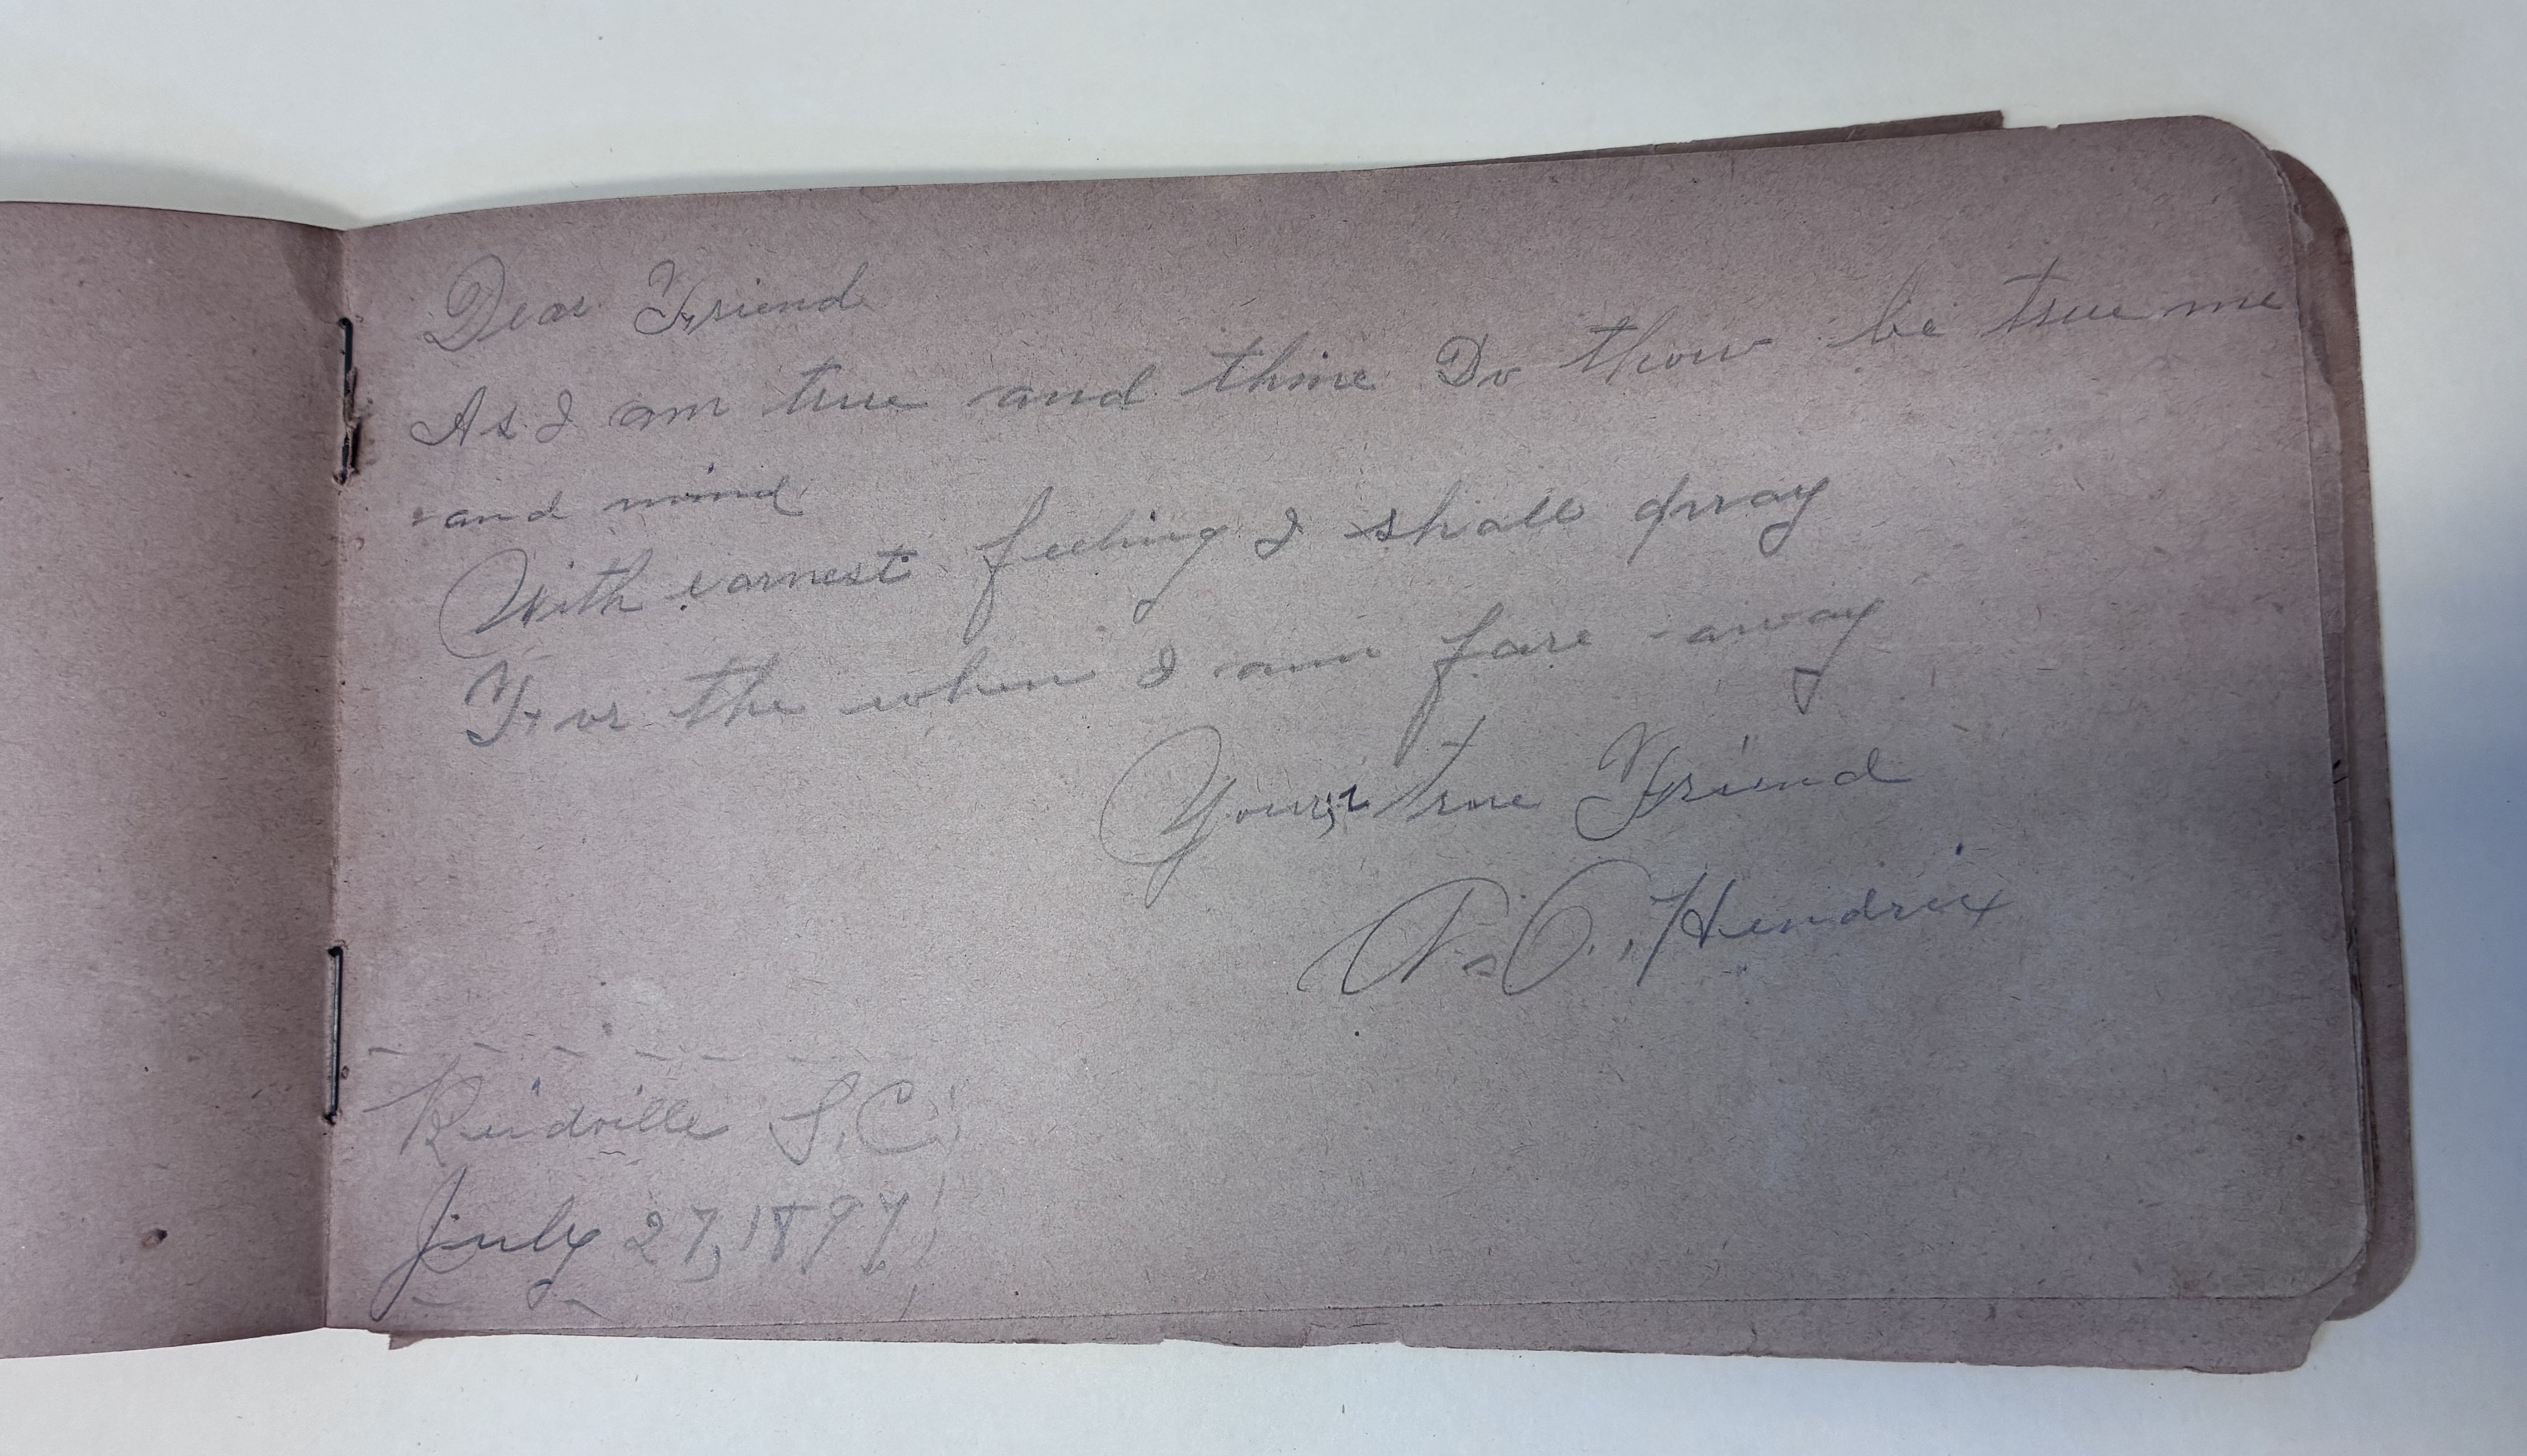 Dear Friend
As I am true and thine Do thou be true me
and mind
With earnest feeling I shall pray
For the when I am fare away
Your true Friend
Hendrix
Reidville S.C.
July 27, 1897